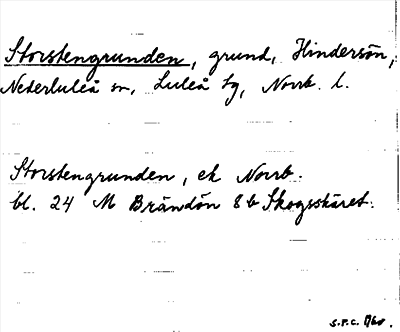 Storstengrunden, grund, Hindersön,
Nederluleå sn, Luleå tg, Norrb. l.
Storstengrunden, ek Norrb.
bl. 24 M Brändön 8 b Skogsskäret.
S.P.C.